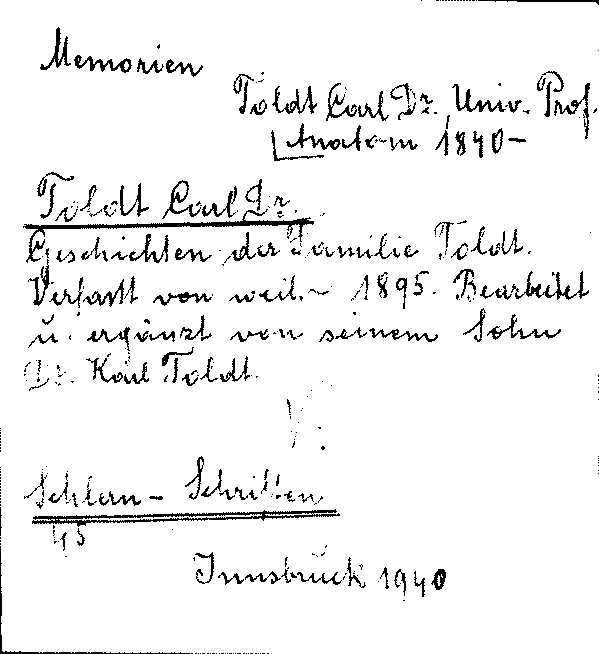 Memorien
Toldt Carl Dr. Univ. Prof.
Anatom 1840-
Toldt Carl Dr.
Geschichten der Familie Toldt.
Verfasst von weil. ~ 1895. Bearbeitet
u. ergänzt von seinem Sohn
Dr. Karl Toldt.
V.
Schlern - Schriften
45
Innsbruck 1940